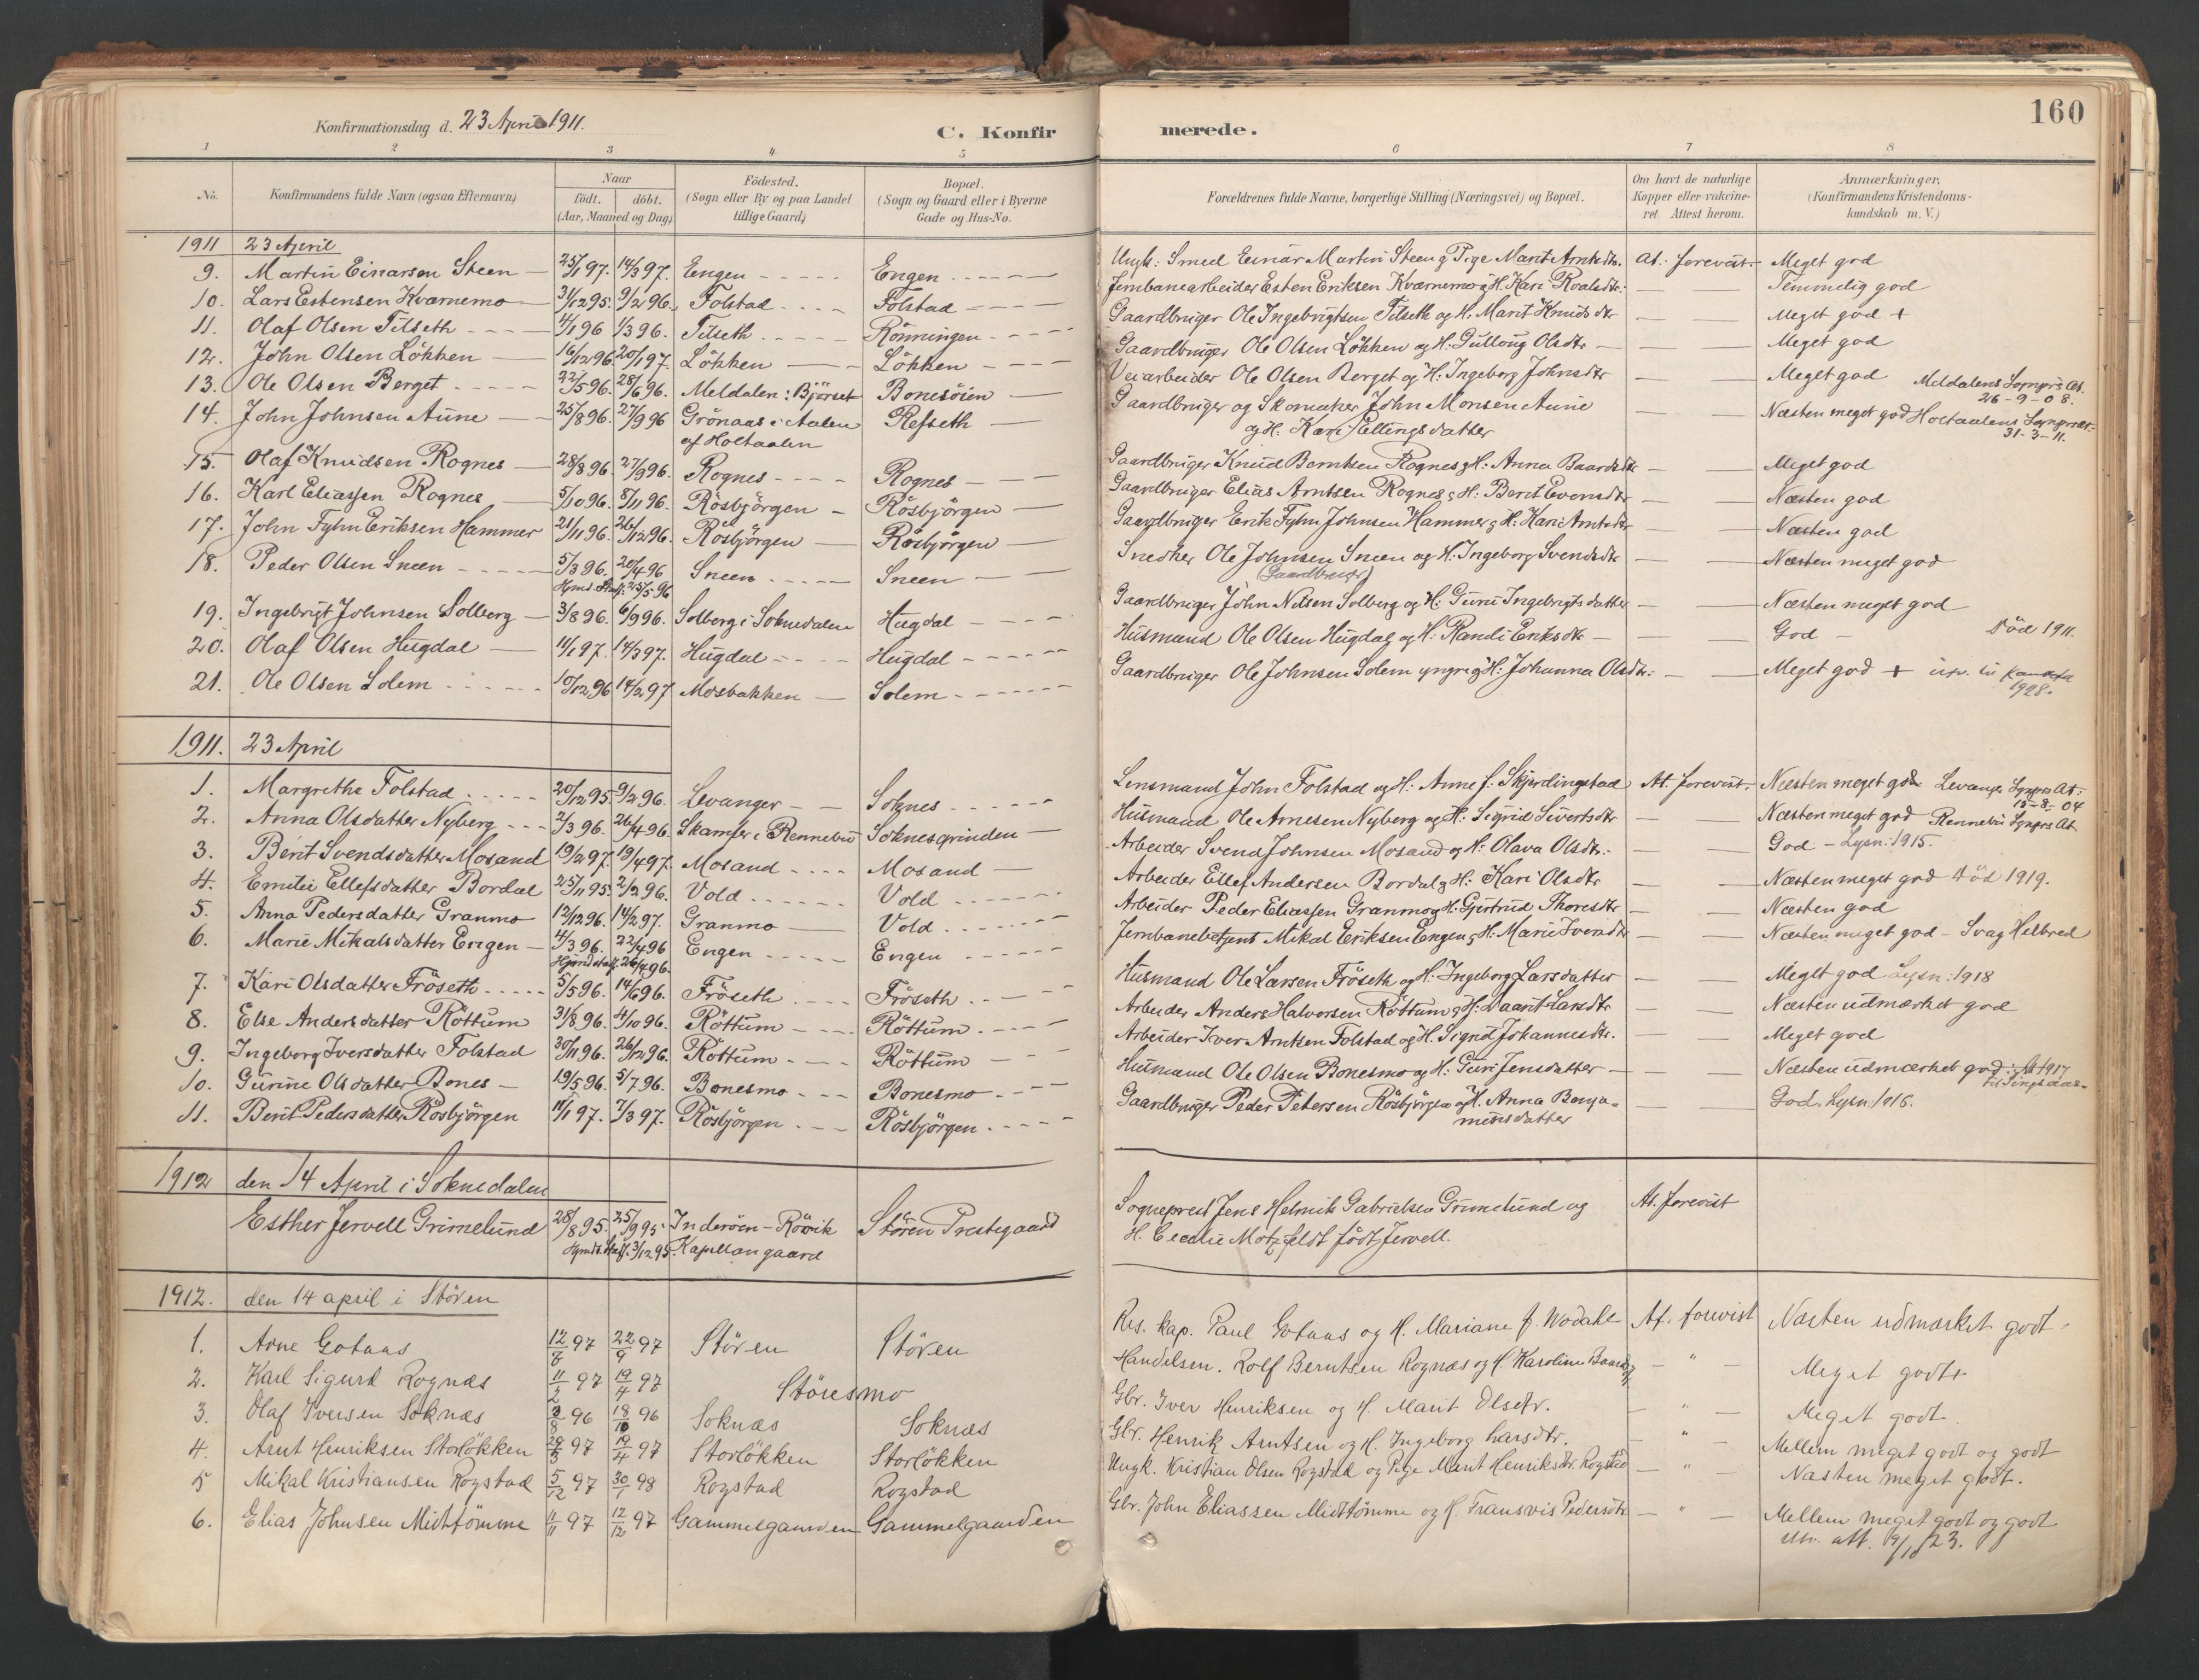 160
Konfirmationsdag d. 23 April 1911.
C. Konfir merede.
1 2 3 4 5 6 7 8
No. Konfirmandens fulde Navn (ogsaa Efternavn) Naar födt. döbt. (Aar, Maaned og Dag) Födested. (Sogn eller By og paa Landet tillige Gaard) Bopæl. (Sogn og Gaard eller i Byerne Gade og Hus-No. Forældrenes fulde Navne, borgerlige Stilling (Næringsvei) og Bopæl. Om havt de naturlige Kopper eller vakcineret. Attest herom. Anmærkninger, (Konfirmandens Kristendomskundskab m. V.)
1911 23 April
9. Martin Einarsen Steen 25/1 97. 14/3 97. Engen Engen Ungk: Smed Einar Martin Steen & Pige Marit Arntsdtr. At. forevist. Meget god
10. Lars Estensen Kværnemo 31/12 95. 9/2 96. Folstad Folstad Jernbanearbeider Esten Eriksen Kværnemo & H. Kari Roaldsdtr. Temmelig god
11. Olaf Olsen Tilseth 4/1 96 1/3 96. Tilseth Rönningen Gaardbruger Ole Ingebrigtsen Tilseth og H. Marit Knudsdtr Meget god +
12. John Olsen Lökken 16/12 96. 20/1 97. Lökken Lökken Gaardbruger Ole Olsen Lökken og H: Gullaug Olsdtr Meget god
13. Ole Olsen Berget 22/5 96. 28/6 96. Meldalen: Björset Bonesöien Veiarbeider Ole Olsen Berget og H: Ingeborg Johnsdtr Meget god Meldalens Sognpr's At. 26-9-08.
14. John Johnsen Aune 25/8 96. 27/9 96 Grönaas i Aalen af Holtaalen Refseth Gaardbruger og Skomaker John Monsen Aune og H. Kari Ellingsdatter Næsten meget god Holtaalens Sognpr. At. 31-3-11.
15. Olaf Knudsen Rognes 28/8 96. 27/9 96. Rognes Rognes Gaardbruger Knud Berntsen Rognes & H: Anna Baardsdtr Meget god
16. Karl Eliassen Rognes 5/10 96. 8/11 96. Rösbjörgen Rösbjörgen Gaardbruger Elias Arntsen Rognes & H: Berit Evensdtr Næsten god
17. John Fyhn Eriksen Hammer 21/11 96. 26/12 96. Rösbjörgen Rösbjörgen Gaardbruger Erik Fyhn Johnsen Hammer & H: Kari Arntsdtr Næsten god
18. Peder Olsen Sneen 5/3 96. 20/4 96 Sneen Sneen Snedker Ole Johnsen Sneen og H: Ingeborg Svendsdtr Næsten meget god
Hjmd. Stadf. 25/5 96 (Gaardbruger)
19. Ingebrigt Johnsen Solberg 3/8 96. 6/9 96. Solberg i Soknedalen Hugdal Gaardbruger John Nilsen Solberg og H: Guru Ingebrigtsdatter Næsten meget god
20. Olaf Olsen Hugdal 11/1 97. 14/3 97. Hugdal Hugdal Husmand Ole Olsen Hugdal og H: Randi Eriksdtr God Död 1911.
21. Ole Olsen Solem 10/12 96 14/2 97 Mosbakken Solem Gaardbruger Ole Johnsen Solem yngre & H: Johanna Olsdtr: Meget god + 1928.
1911. 23 April
1. Margrethe Folstad 20/12 95. 9/2 96. Levanger Soknes Lensmand John Folstad og H: Anne f. Skjerdingstad At. forevist. Næsten meget god Levanger Sognpr. At: 15-8-04
2. Anna Olsdatter Nyberg 2/3 96. 26/4 96. Skamfer i Rennebu Soknesgrinden Husmand Ole Arnesen Nyberg og H: Sigrid Sivertsdtr Næsten meget god Rennebu Sognpr's At.
3. Berit Svendsdatter Mosand 19/2 97. 19/4 97. Mosand Mosand Arbeider Svend Johnsen Mosand og H: Olava Olsdtr. God - Lysn: 1915.
4. Emilie Ellefsdatter Bordal 25/11 95. 2/2 96. Vold Vold Arbeider Ellef Andersen Bordal & H: Kari Olsdtr Næsten meget god Död 1919.
5. Anna Pedersdatter Granmo 12/12 96. 14/2 97. Granmo Vold Arbeider Peder Eliassen Granmo og H: Gjertrud Thoresdtr Næsten god
6. Marie Mikalsdatter Engen 4/3 96. 22/4 96 Engen Engen Jernbanebetjent Mikal Eriksen Engen & H: Marie Iversdtr Næsten meget god - Svag Helbred
Hjemd. stadf. 26/4 96.
7. Kari Olsdatter Fröseth 5/5 96. 14/6 96. Fröseth Fröseth Husmand Ole Larsen Fröseth og H: Ingeborg Larsdatter Meget god Lysn: 1918
8. Else Andersdatter Röttum 31/8 96. 4/10 96. Röttum Röttum Arbeider Anders Halvorsen Röttum & H: Marit Larsdtr Næsten udmærket god
9. Ingeborg Iversdatter Folstad 30/11 96. 26/12 96. Röttum Röttum Arbeider Iver Arntsen Folstad og H. Sigrid Johannesdtr. Meget god
10. Gurine Olsdatter Bones 19/5 96. 5/7 96. Bonesmo Bonesmo Husmand Ole Olsen Bonesmo og H: Guri Jensdatter Næsten udmærket god. At 1917 til Singsaas.
11. Berit Pedersdatter Rösbjörgen 11/1 97. 7/3 97. Rösbjörgen Rösbjörgen Gaardbruger Peder Petersen Rösbjörgen og H. Anna Benjaminsdatter God. Lysn: 1916.
1912 den 14 April i Soknedalen
Esther Jervell Grimelund 28/8 95. 25/9 95. Inderöen - Rövik Kapellangaard Stören Prestegaard Sogneprest Jens Helmik Gabrielsen Grimelund og H. Cecilie Motzfeldt født Jervell. At. forevist
Hjmd. Stadf. 3/12 95.
1912. den 14 april i Stören
1. Arne Gotaas 12/8 97 22/9 97 Stören Stören Res. kap. Paul Gotaas og H. Mariane f. Wodahl At. forevist Næsten udmærket godt.
2. Karl Sigurd Rognæs 11/2 97 19/4 97 Störesmo Handelsm. Rolf Berntsen Rognæs og H. Karoline Meget godt
3. Olaf Iversen Soknæs 8/8 96 18/10 96 Soknæs Soknæs Gbr. Iver Henriksen og H. Marit Olsdtr. Meget godt
4. Arnt Henriksen Storlökken 29/3 97 19/4 97 Storlökken Storlökken Gbr. Henrik Arntsen og H. Ingeborg Larsdtr. Mellem meget godt og godt
5 Mikal Kristiansen Rogstad 5/12 97 30/1 98 Rogstad Rogstad Ungk. Kristian Olsen Rogstad og Pige Marit Henriksdtr. Rogstad Næsten meget godt.
6. Elias Johnsen Midttömme 11/11 97 12/12 97 Gammelgaarden Gammelgaarden Gbr. John Eliassen Midttömme og H. Fransvis Pedersdtr Mellem meget godt og godt
Utv. att. 19/1 23.